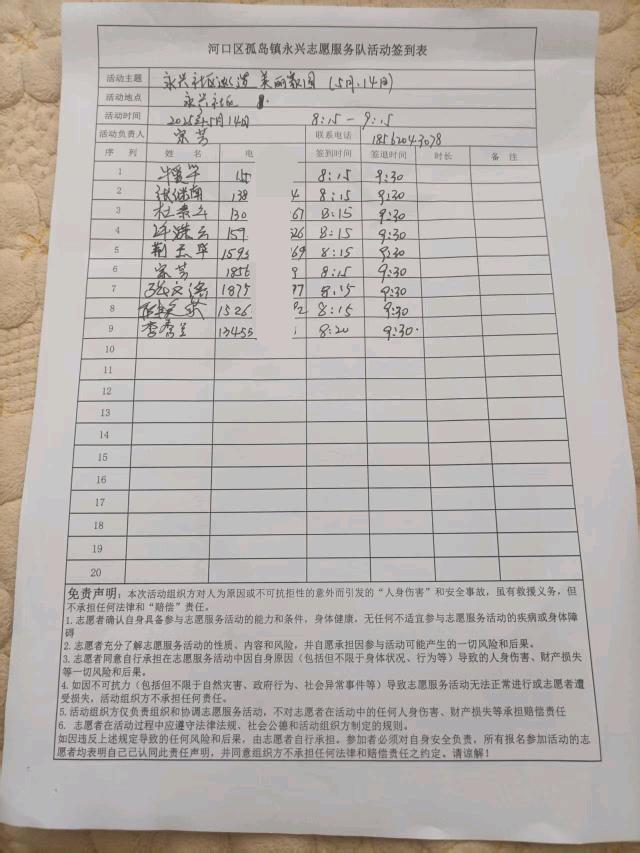 河口区孤岛镇永兴志愿服务队活动签到表
活动主题 永兴社区 美丽家园 (5月14日)
活动地点 永兴社区
活动时间 2025年5月14日 8:15-9:15
活动负责人 宋芳 联系电话
序 列 姓 名 电 签到时间 签退时间 时长 备 注
1 155 8:15 9:30
2 138 8:15 9:30
3 130 67 8:15 9:30
4 159 26 8:15 9:30
5 1595 69 8:15 9:30
6 宋芳 1856 9 8:15 9:30
7 1875 77 8:15 9:30
8 1526 8:15 9:30
9 李秀兰 13455 8:20 9:30
10
11
12
13
14
15
16
17
18
19
20
免责声明：本次活动组织方对人为原因或不可抗拒性的意外而引发的“人身伤害”和安全事故，虽有救援义务，但
不承担任何法律和“赔偿”责任。
1.志愿者确认自身具备参与志愿服务活动的能力和条件，身体健康，无任何不适宜参与志愿服务活动的疾病或身体障
碍
2.志愿者充分了解志愿服务活动的性质、内容和风险，并自愿承担因参与活动可能产生的一切风险和后果。
3.志愿者同意自行承担在志愿服务活动中因自身原因（包括但不限于身体状况、行为等）导致的人身伤害、财产损失
等一切风险和后果。
4.如因不可抗力（包括但不限于自然灾害、政府行为、社会异常事件等）导致志愿服务活动无法正常进行或志愿者遭
受损失，活动组织方不承担任何责任。
5.活动组织方仅负责组织和协调志愿服务活动，不对志愿者在活动中的任何人身伤害、财产损失等承担赔偿责任
6. 志愿者在活动过程中应遵守法律法规、社会公德和活动组织方制定的规则。
如因违反上述规定导致的任何风险和后果，由志愿者自行承担。参加者必须对自身安全负责，所有报名参加活动的志
愿者均表明自己已认同此责任声明，并同意组织方不承担任何法律和赔偿责任之约定。请谅解！